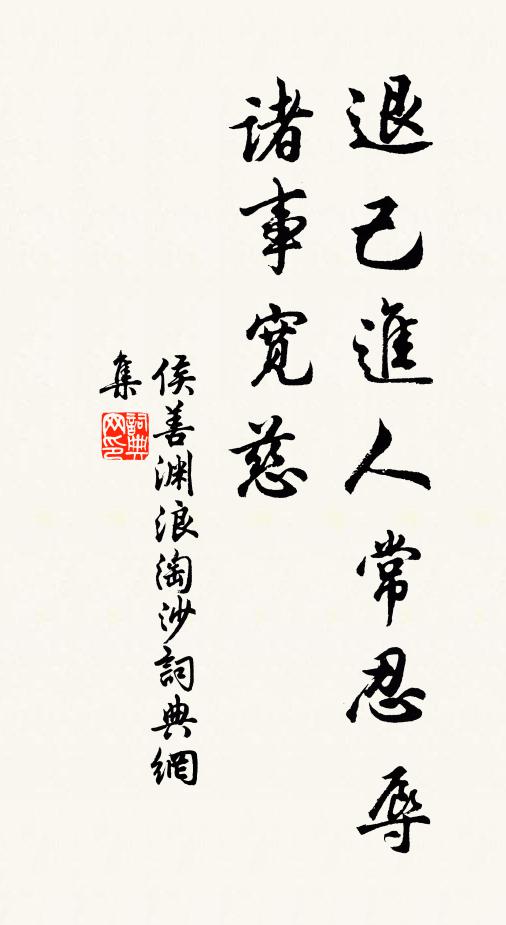 退己進人常忍辱
諸事寬慈
侯善渊浪淘沙詞典網
集
詞典
网印